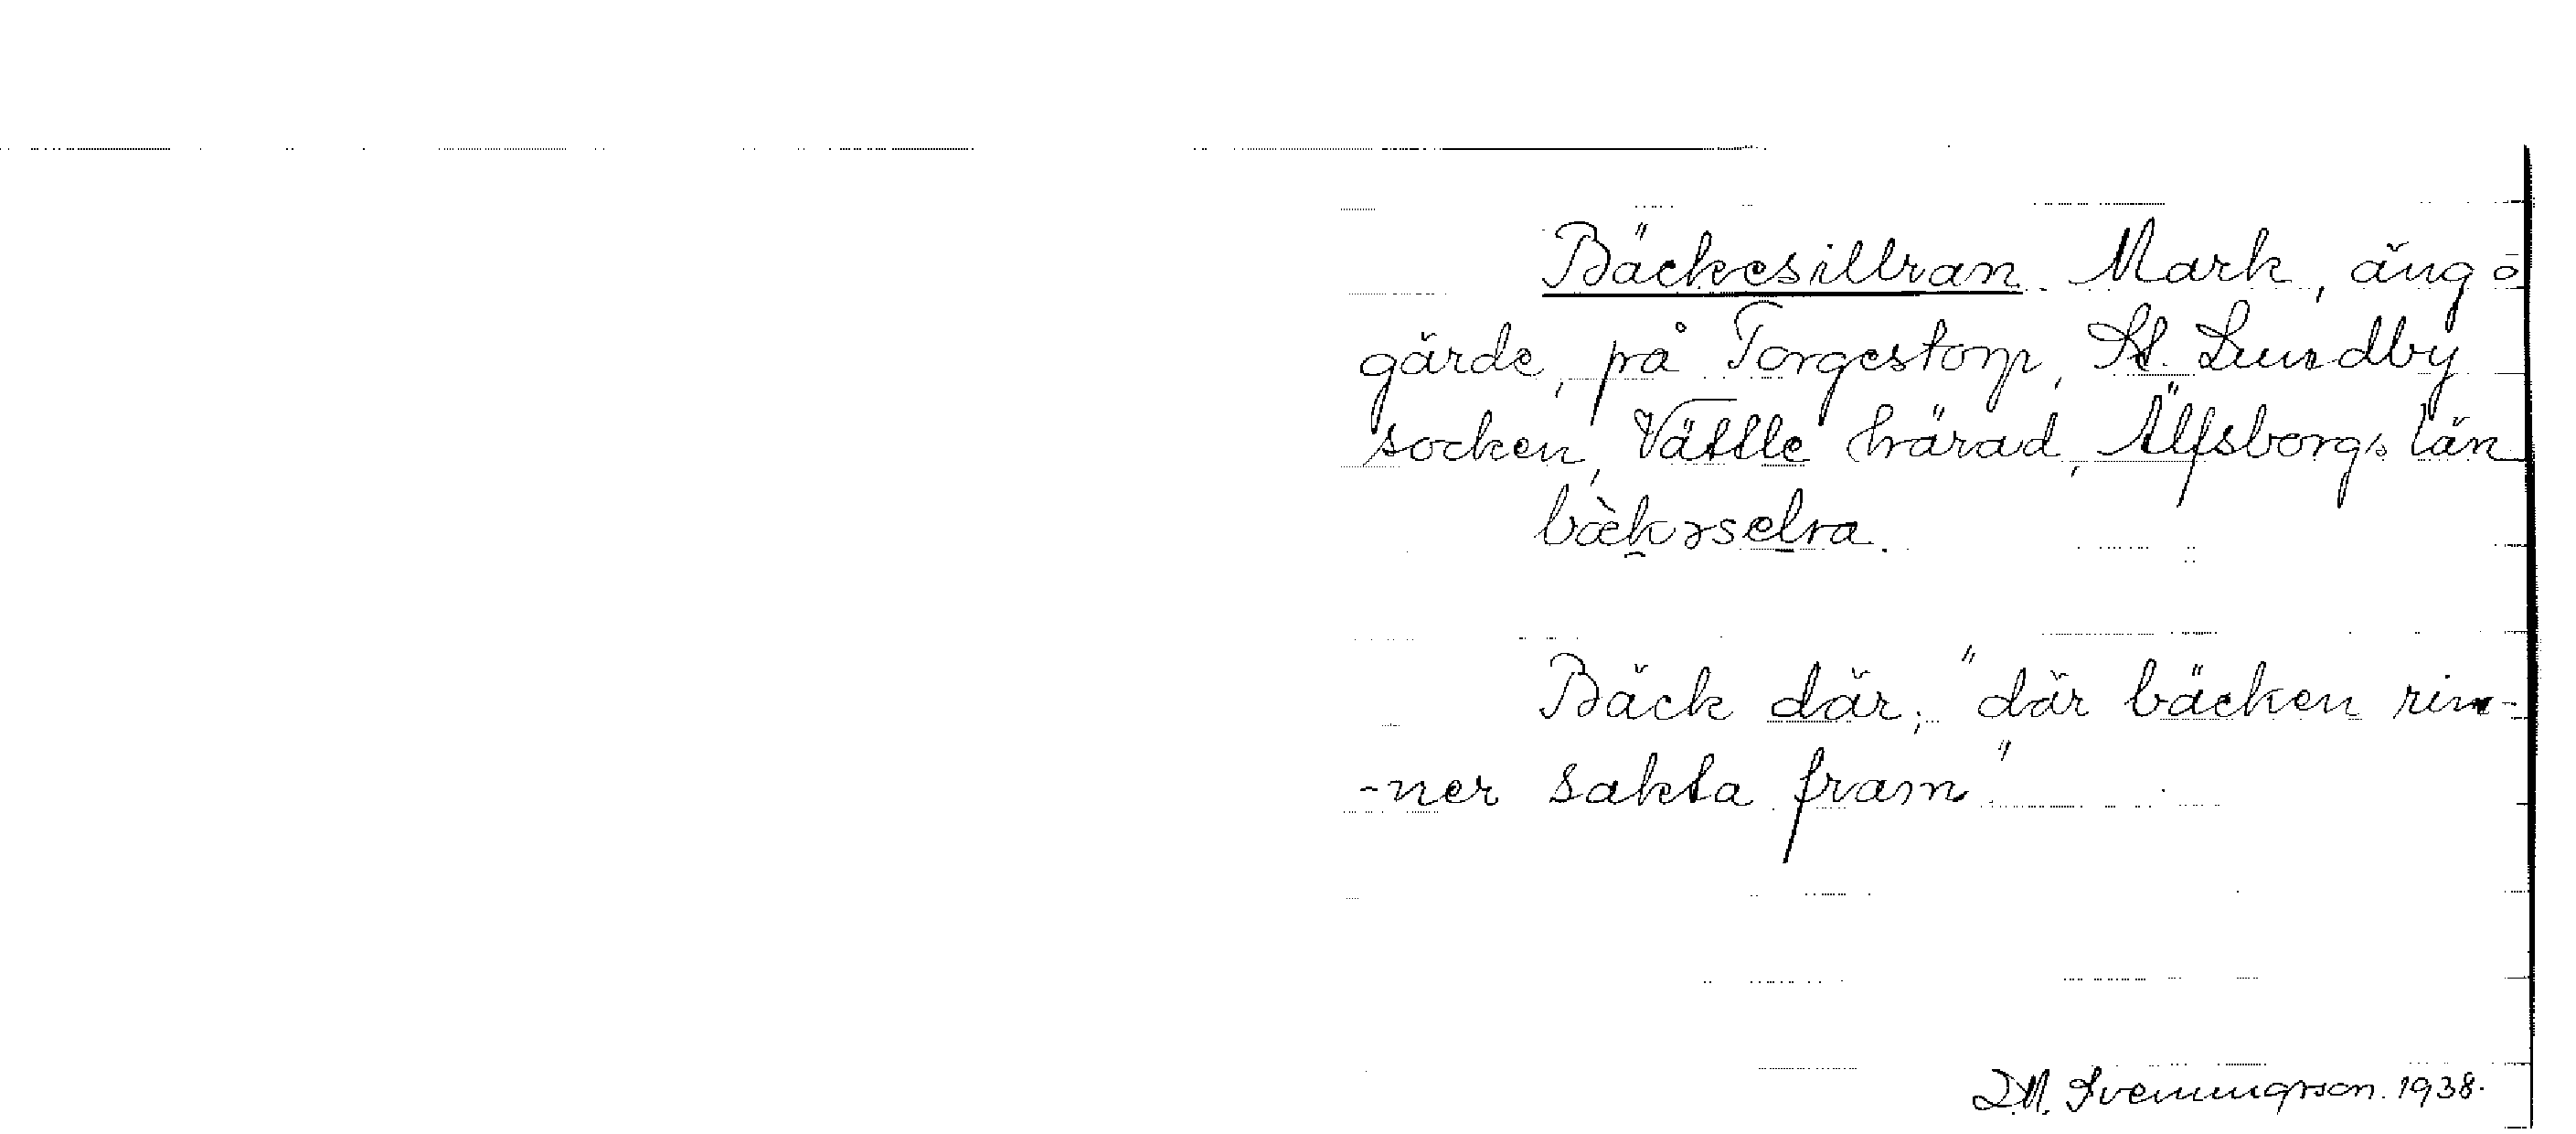 Bäckesillran. Mark, äng o
gärde, på Torgestorp, St. Lundby
socken, Vättle härad, Älfsborgs län
bæ̀kəselra.
Bäck där; "där bäcken rin-
-ner sakta fram"
Svenungsson. 1938.